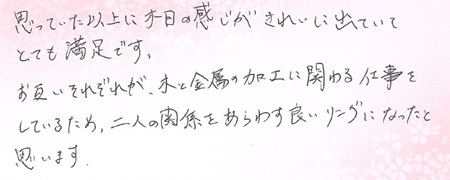 思っていた以上に木目の感じがきれいに出ていて
とても満足です。
お互いそれぞれが、木と金属の加工に関わる仕事を
しているため、二人の関係をあらわす良いリングになったと
思います.